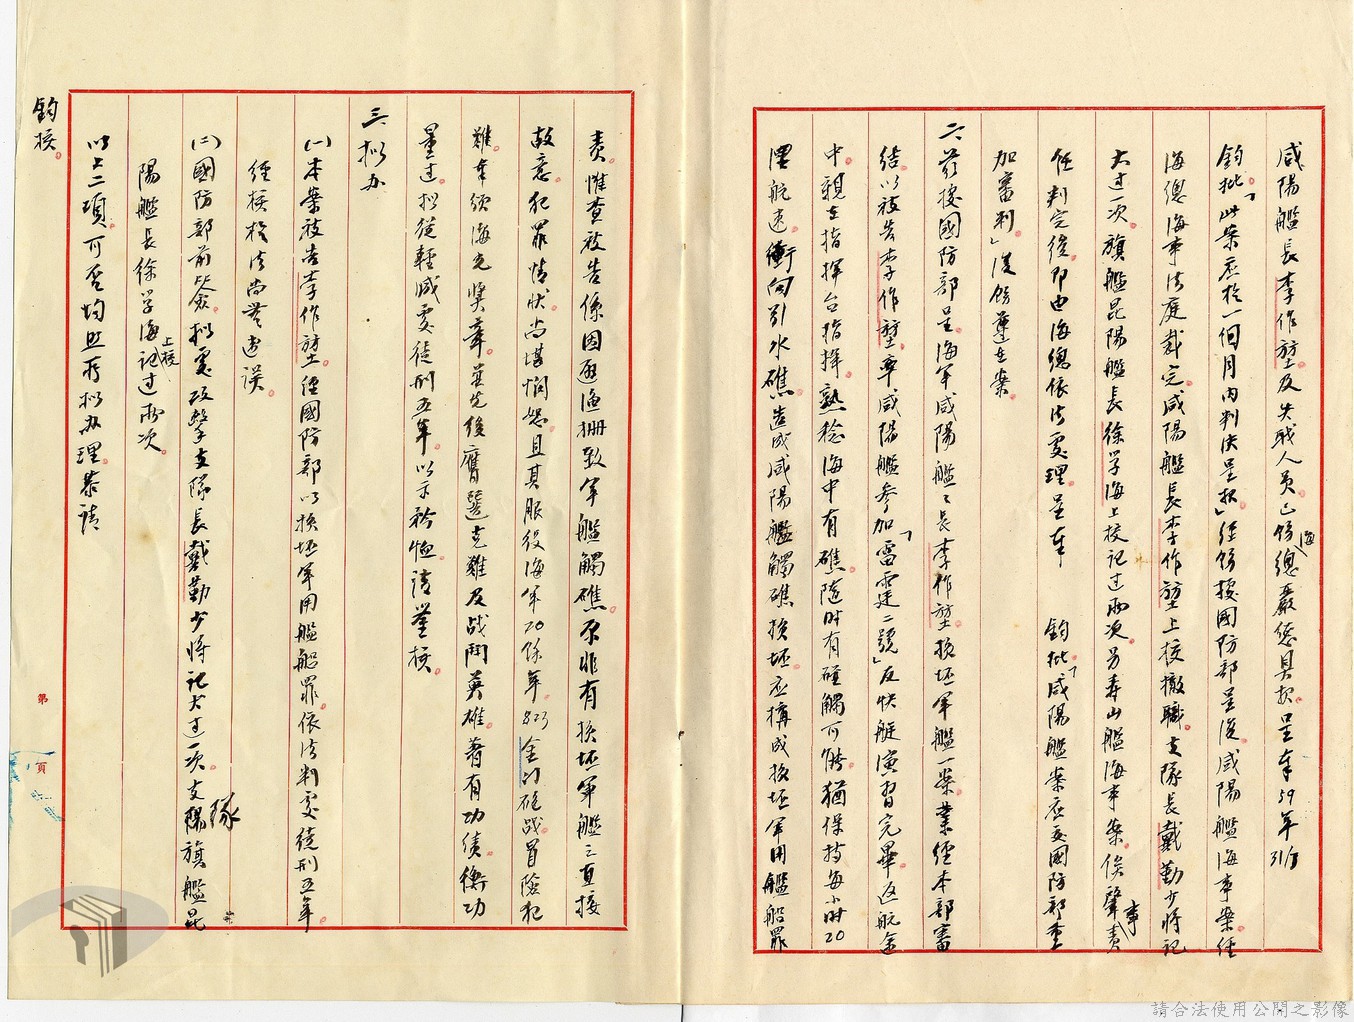 咸陽艦長李作堃及失職人員已飭海總嚴懲具報呈奉59年31/8
鈞批「此案應於一個月內判決呈報」經飭據國防部呈復咸陽艦海事案經
海總海事法庭裁定咸陽艦長李作堃上校撤職支隊長戴勤少將記
大過一次旗艦昆陽艦長徐學海上校記過兩次另壽山艦海事案俟肇事責
任判定後即由海總依法處理呈奉 鈞批「咸陽艦案應交國防部重
加審判」復飭遵在案
二、茲據國防部呈海軍咸陽艦艦長李作堃損壞軍艦一案業經本部審
結以被告李作堃率咸陽艦參加「雷霆二號」反快艇演習完畢返航途
中親在指揮台指揮熟稔海中有礁隨時有碰觸可能猶保持每小時20
浬航速衝向引水礁造成咸陽艦觸礁損壞應構成損壞軍用艦船罪
責惟查被告係因避漁柵致軍艦觸礁原非有損壞軍艦之直接
故意犯罪情狀尚堪憫恕且其服役海軍20餘年823金門砲戰冒險犯
難奉頒海光獎章並先後膺選克難及戰鬥英雄著有功績衡功
量過擬從輕減處徒刑五年以示矜恤請鑒核
三、擬办
(一)本案被告李作堃經國防部以損壞軍用艦船罪依法判處徒刑五年
經核於法尚無違誤
(二)國防部前簽擬處攻擊支隊長戴勤少將記大過一次支隊旗艦昆
陽艦長徐學海上校記過兩次
以上二項可否均照所擬办理恭請
鈞核
第 頁
請合法使用公開之影像